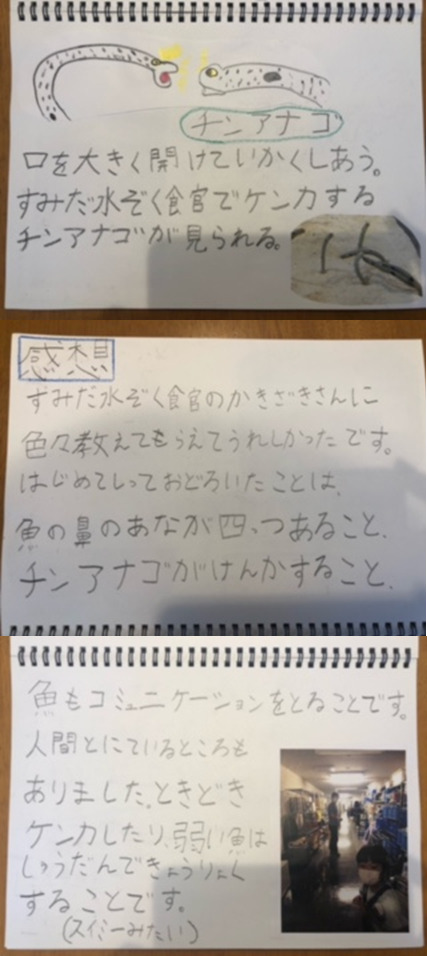 チンアナゴ
口を大きく開けていかくしあう。
すみだ水ぞく食官でケンカする
チンアナゴが見られる。
感想
すみだ水ぞく食官のかきざきさんに
色々教えてもらえてうれしかったです。
はじめてしっておどろいたことは、
魚の鼻のあなが四つあること、
チンアナゴがけんかすること、
魚もコミュニケーションをとることです。
人間とにているところも
ありました。ときどき
ケンカしたり、弱い魚は
しゅうだんできょうりょく
することです。
(スイミーみたい)